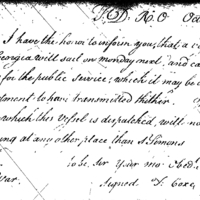 T. D. R. O Oct
I have the honor to inform you, that a v
Georgia will sail on monday next, and ca
for the public Service; which it may be
dtment to have transmitted thither.
which this Vessel is despatched, will no
ing at any other place than St. Simons
to be, Sir Your mo: Obed.
War. Signed T. Coxe,